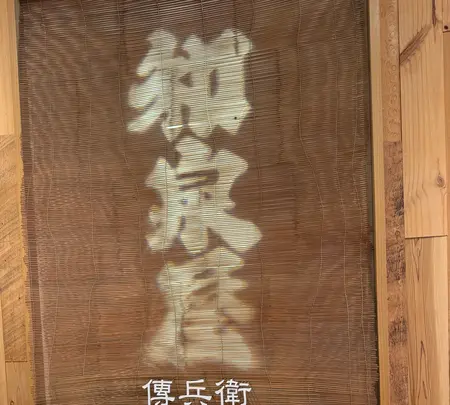 和泉屋
傳兵衛